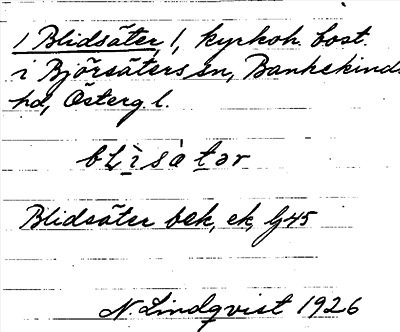 / Blidsäter /, kyrkoh. bost.
i Björsäters sn, Bankekinds
hd, Österg l.
blìsàtər
Blidsäter bek, ek, Gj45
N. Lindqvist 1926